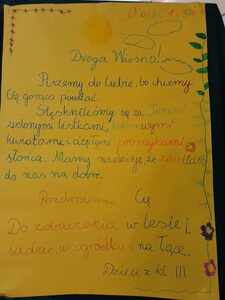 Droga Wiosno!
Piszemy do Ciebie, bo chcemy
Cię gorąco powitać.
Stęskniliśmy się za
zielonymi listkami, kolorowymi
kwiatami i ciepłymi promykami
słońca. Mamy nadzieję, że
do nas na dobre.
Pozdrawiamy Cię
Do zobaczenia w lesie,
sadzie, w ogródku i na łące.
Dzieci z kl III